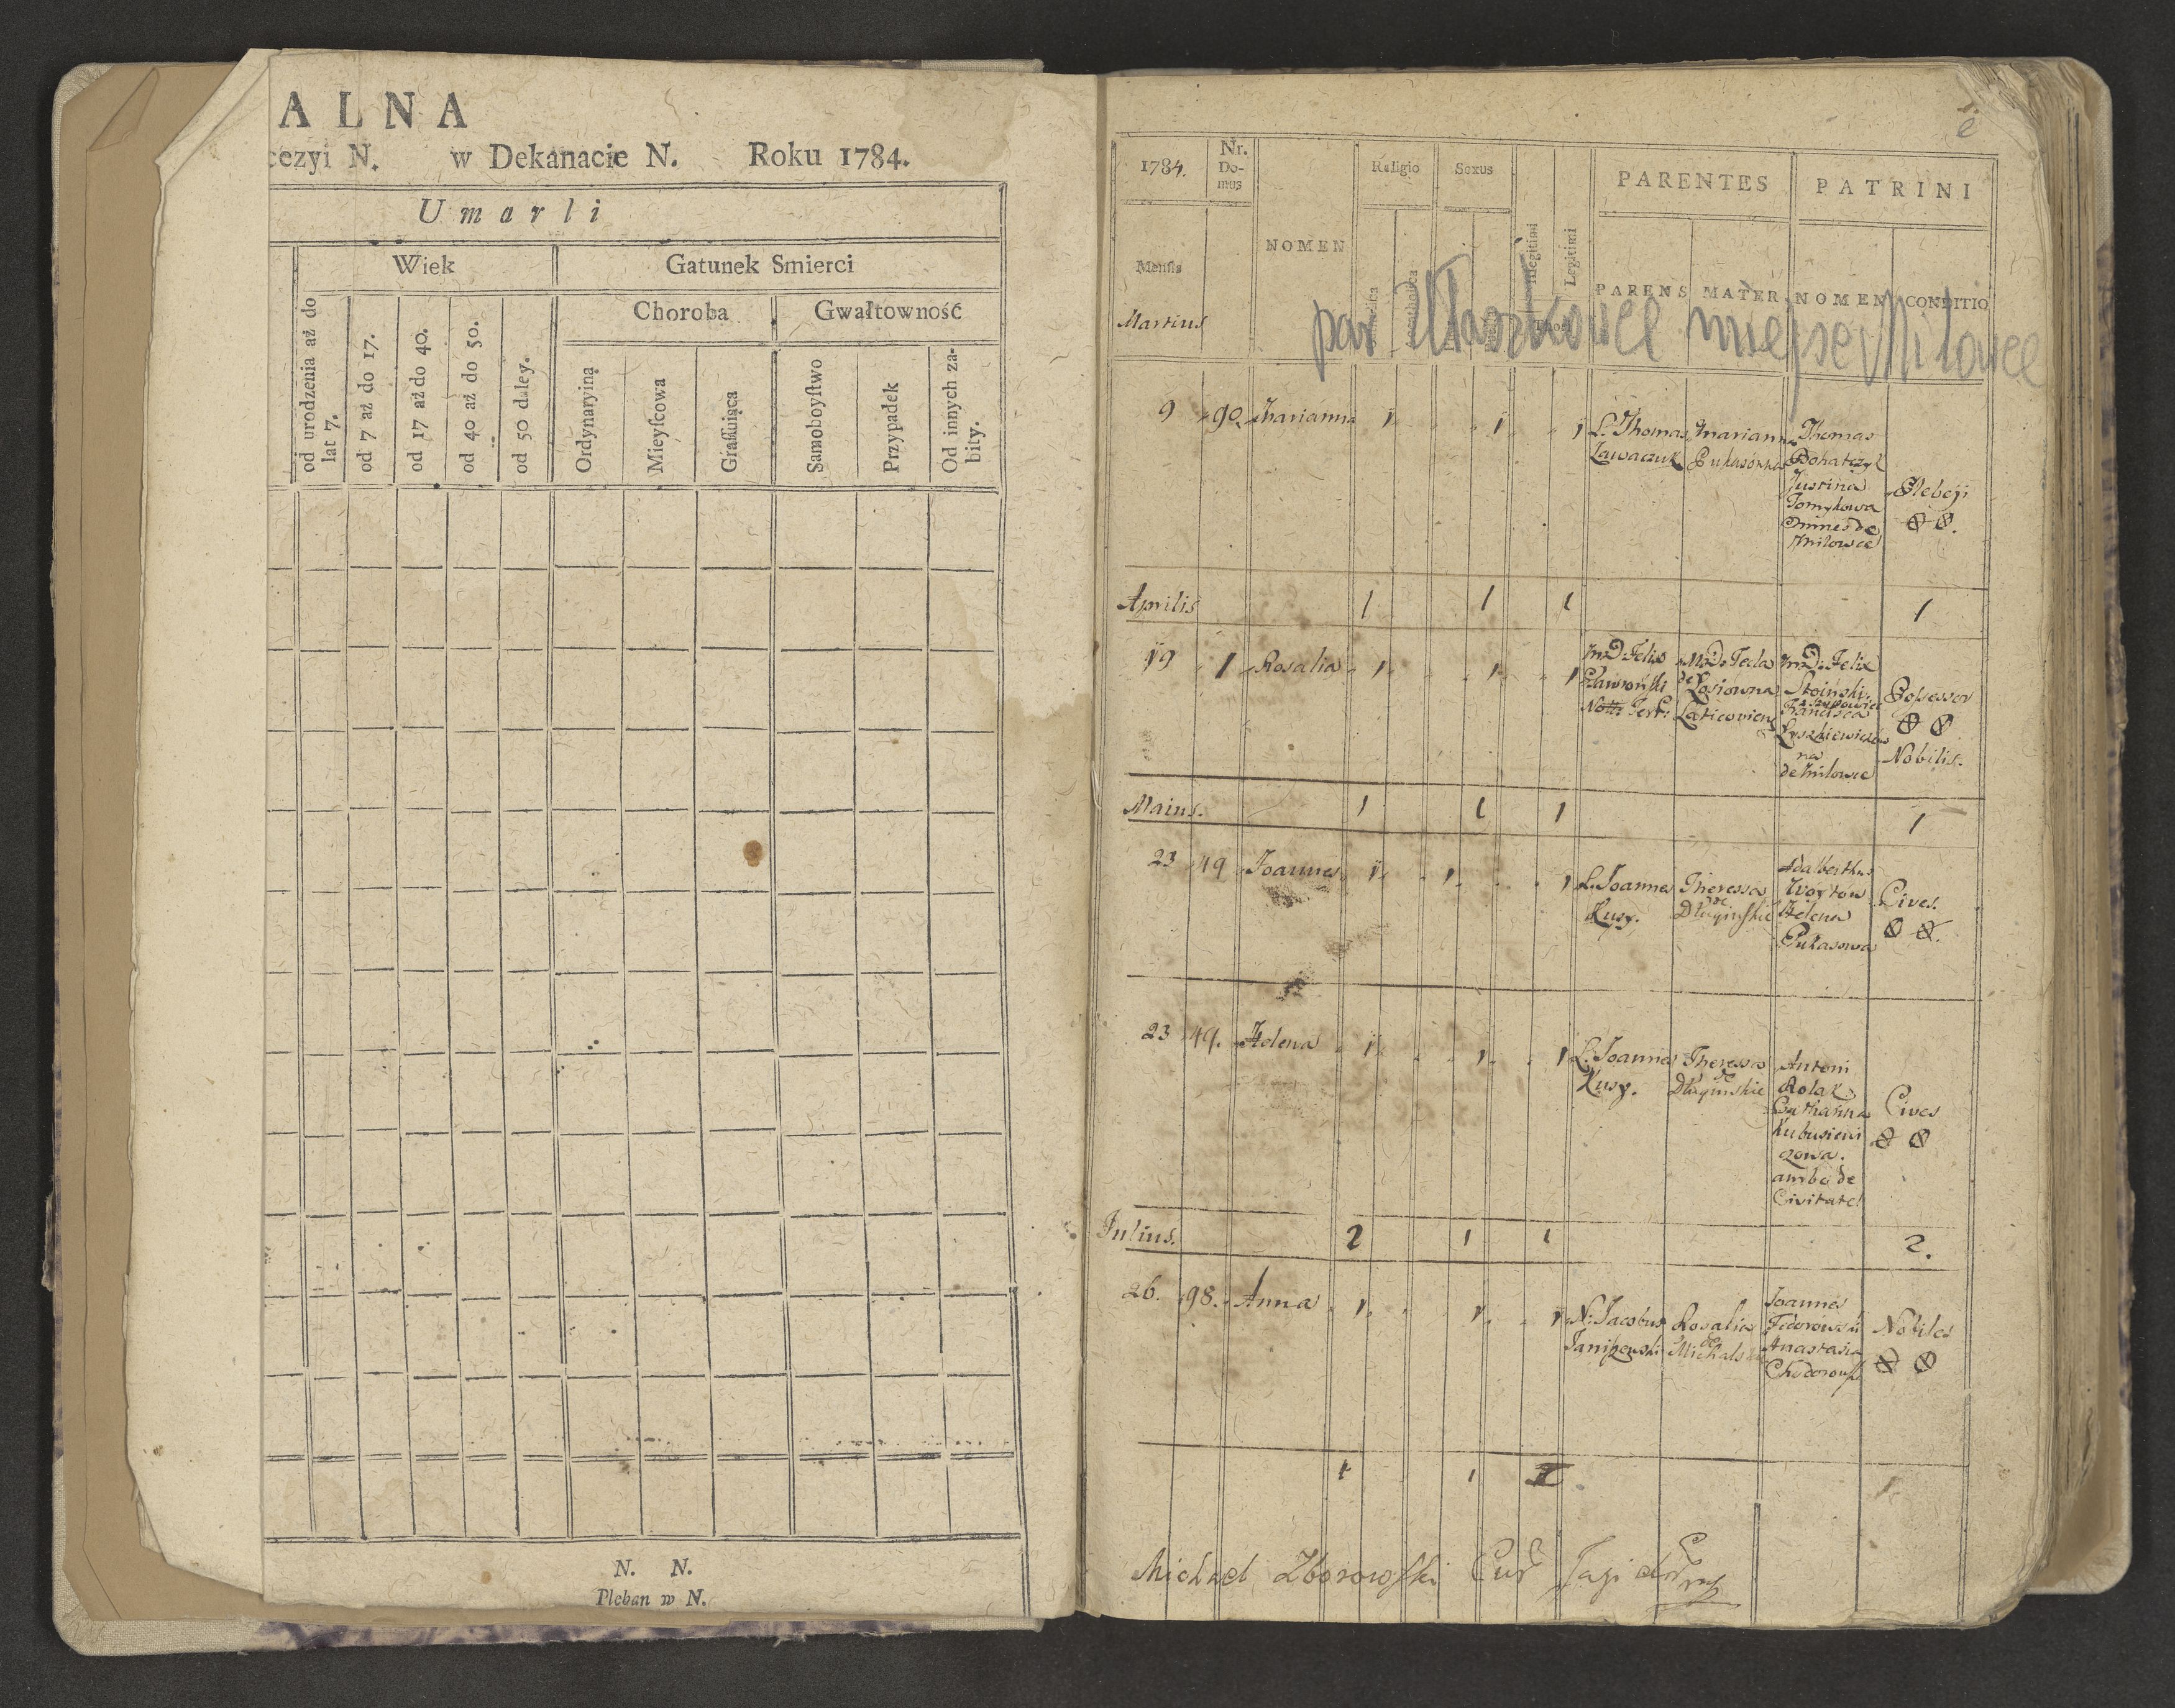 ALNA
cezyi N. w Dekanacie N. Roku 1784.
Umarli
Wiek
Gatunek Smierci
Choroba
Gwałtowność
od urodzenia aż do lat 7.
od 7 aż do 17.
od 17 aż do 40.
od 40 aż do 50.
od 50 daley.
Ordynaryiną
Mieyſcowa
Graſſuiąca
Samoboyſtwo
Przypadek
Od innych zabity.
N. N.
Pleban w N.
1784.
Nr. Domus
NOMEN
Religio
Sexus
Illegitimi
Legitimi
Thori
PARENTES
PATRINI
Menſis
PARENS
MATER
NOMEN
CONDITIO
Martius
par Ułaszkowce miejsc Milowce
9 90 Marianna 1 1 1
L. Thomas
Ławaczuk
Marianna
Pukasówna
Thomas
Bohatczyk
Justina
Tomykowa
Omnes de
Milowce
Plebeji
Aprilis 1 1 1 1
19 1 Rosalia 1 1 1
MD. Felix
MD. Tecla
de Łosiowna
MD. Felix
Stoinski
Francisca
de Milowce
Possessor
Nobilis.
Maius. 1 1 1 1
23 49 Joannes 1 1 1
L. Joannes
Kusy.
Theressa
de
Długinskie
Adalbertus
Woytow
Helena
Pukasowa
Cives.
23 49. Helena 1 1 1
L. Joannes
Kusy.
Theressa
de
Długinskie
Antoni
Rolak
Catharina
Kubusiewi
czowa.
ambo de
Civitate
Cives
Julius. 2 1 1 2.
26. 98. Anna 1 1 1
N. Jacobus
Janiszewski
Rosalia
de
Michalskie
Joannes
Fedorowski
Anastasia
Chodorowsk
Nobiles
1 1 1
Michael Zborowſki